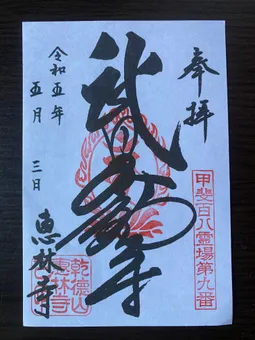 奉拝
甲斐百八霊場第九番
武
令和五年
五月 三日
恵林寺
乾徳山
恵林寺